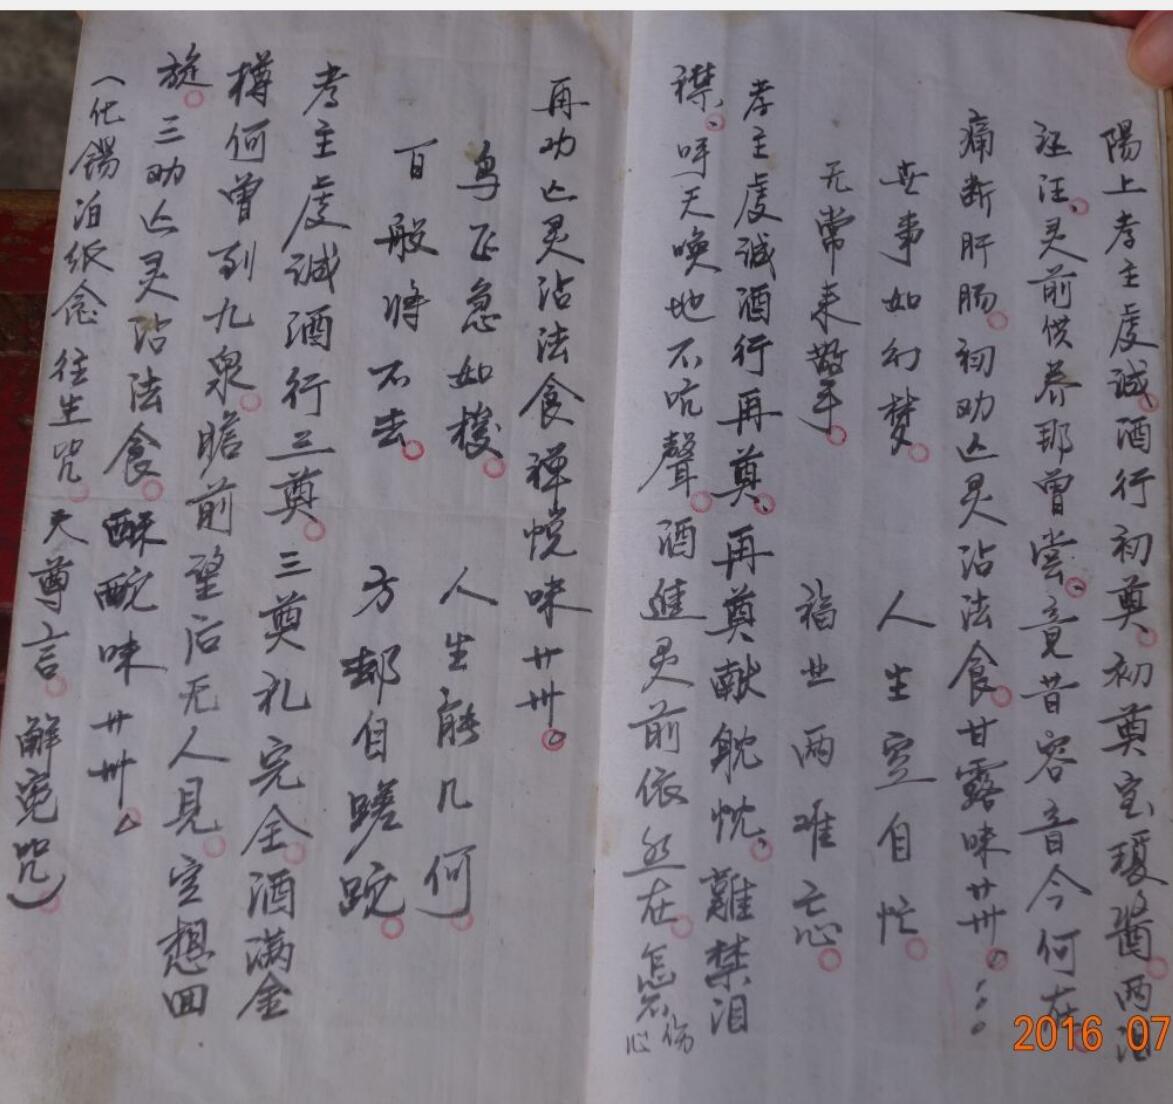 陽上孝主虔誠酒行初奠初奠宝瓊酱两泪
汪汪灵前供养那曾尝竟昔容音今何在
痛断肝肠初劝亡灵沾法食甘露味卄卅
世事如幻梦 人生空自忙
无常来散手 福业两难忘
孝主虔誠酒行再奠再奠献躭忱難禁泪
襟呼天喚地不吭聲酒進灵前依然在怎不伤心
再劝亡灵沾法食禅悦味卄卅
鸟飞急如梭 人生能几何
百般将不去 方却自蹉跎
考主虔誠酒行三奠三奠礼完全酒满金
樽何曾到九泉瞻前望后无人見空想回
旋三劝亡灵沾法食酥酡味卄卅
(化锡泊纸念往生咒天尊言解冤咒)
2016 07